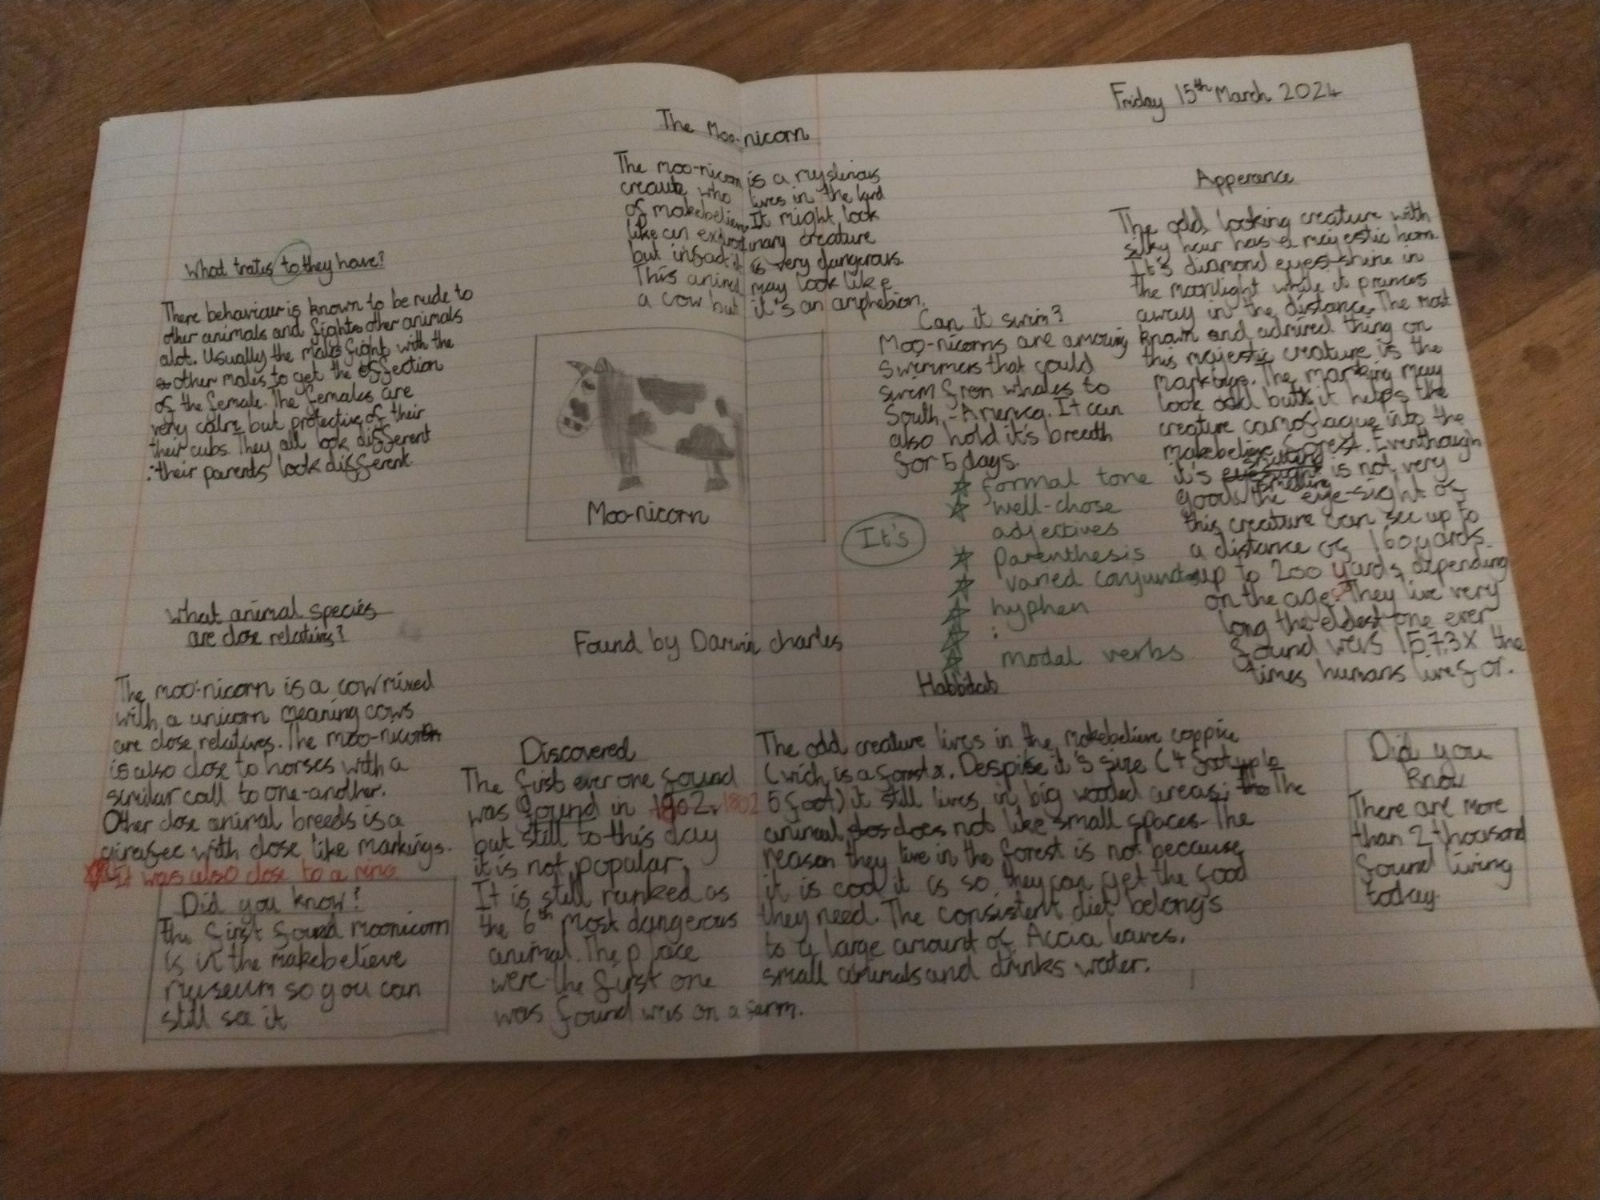 Friday 15th March 2024
The Moo-nicorn
The moo-nicorn is a mysterious
creaute who lives in the land
of makebelieve. It might look
like an extrordinary creature
but infact it is very dangerous.
This animal may look like
a cow but it's an amphebion.
What trates to they have?
There behaviour is known to be rude to
other animals and fights other animals
alot. Usually the males fight with the
other males to get the offection
of the female. The females are
very calm but protective of their
their cubs. They all look different
: their parents look different.
Moo-nicorn
Found by Darwin charles
What animal species
are close relatives?
The moo-nicorn is a cow mixed
with a unicorn meaning cows
are close relatives. The moo-nicorn
is also close to horses with a
similar call to one-another.
Other close animal breeds is a
giraffee with close like markings.
It was also close to a rhino
Did you know?
the first found moonicorn
is in the makebelieve
museum so you can
still see it
Discovered
The first ever one found
was found in 1802, 1802
but still to this day
it is not popular.
It is still runked as
the 6th most dangerous
animal. The place
were the first one
was found was on a farm.
Can it swim?
Moo-nicorns are amazing
swimmers that could
swim from whales to
South-America. It can
also hold it's breath
for 5 days.
It's
formal tone
well-chose
adjectives
Parenthesis
varied conjunctions
hyphen
:
modal verbs
Apperance
The odd looking creature with
silky hair has a majestic horn.
It's diamond eyes shine in
the moonlight while it prances
away in the distance. The most
known and admired thing on
this majestic creature is the
markings. The marking may
look odd but it helps the
creature camoflague into the
makebelieve forest. Eventhough
it's smelling is not very
good the eye-sight of
this creature can see up to
a distance of 160 yards
up to 200 yards depending
on the age. They live very
long the eldest one ever
found was 1573x the
times humans live for.
Habbitab
The odd creature lives in the makebelieve coppice
(wich is a forest). Despise it's size (4 foot
5 foot) it still lives in big wooded areas; The
animal does not like small spaces. The
reason they live in the forest is not because
it is cool it is so they can get the food
they need. The consistent diet belongs
to a large amount of Accia leaves,
small animals and drinks water.
Did you
know
There are more
than 2 thousand
found living
today.